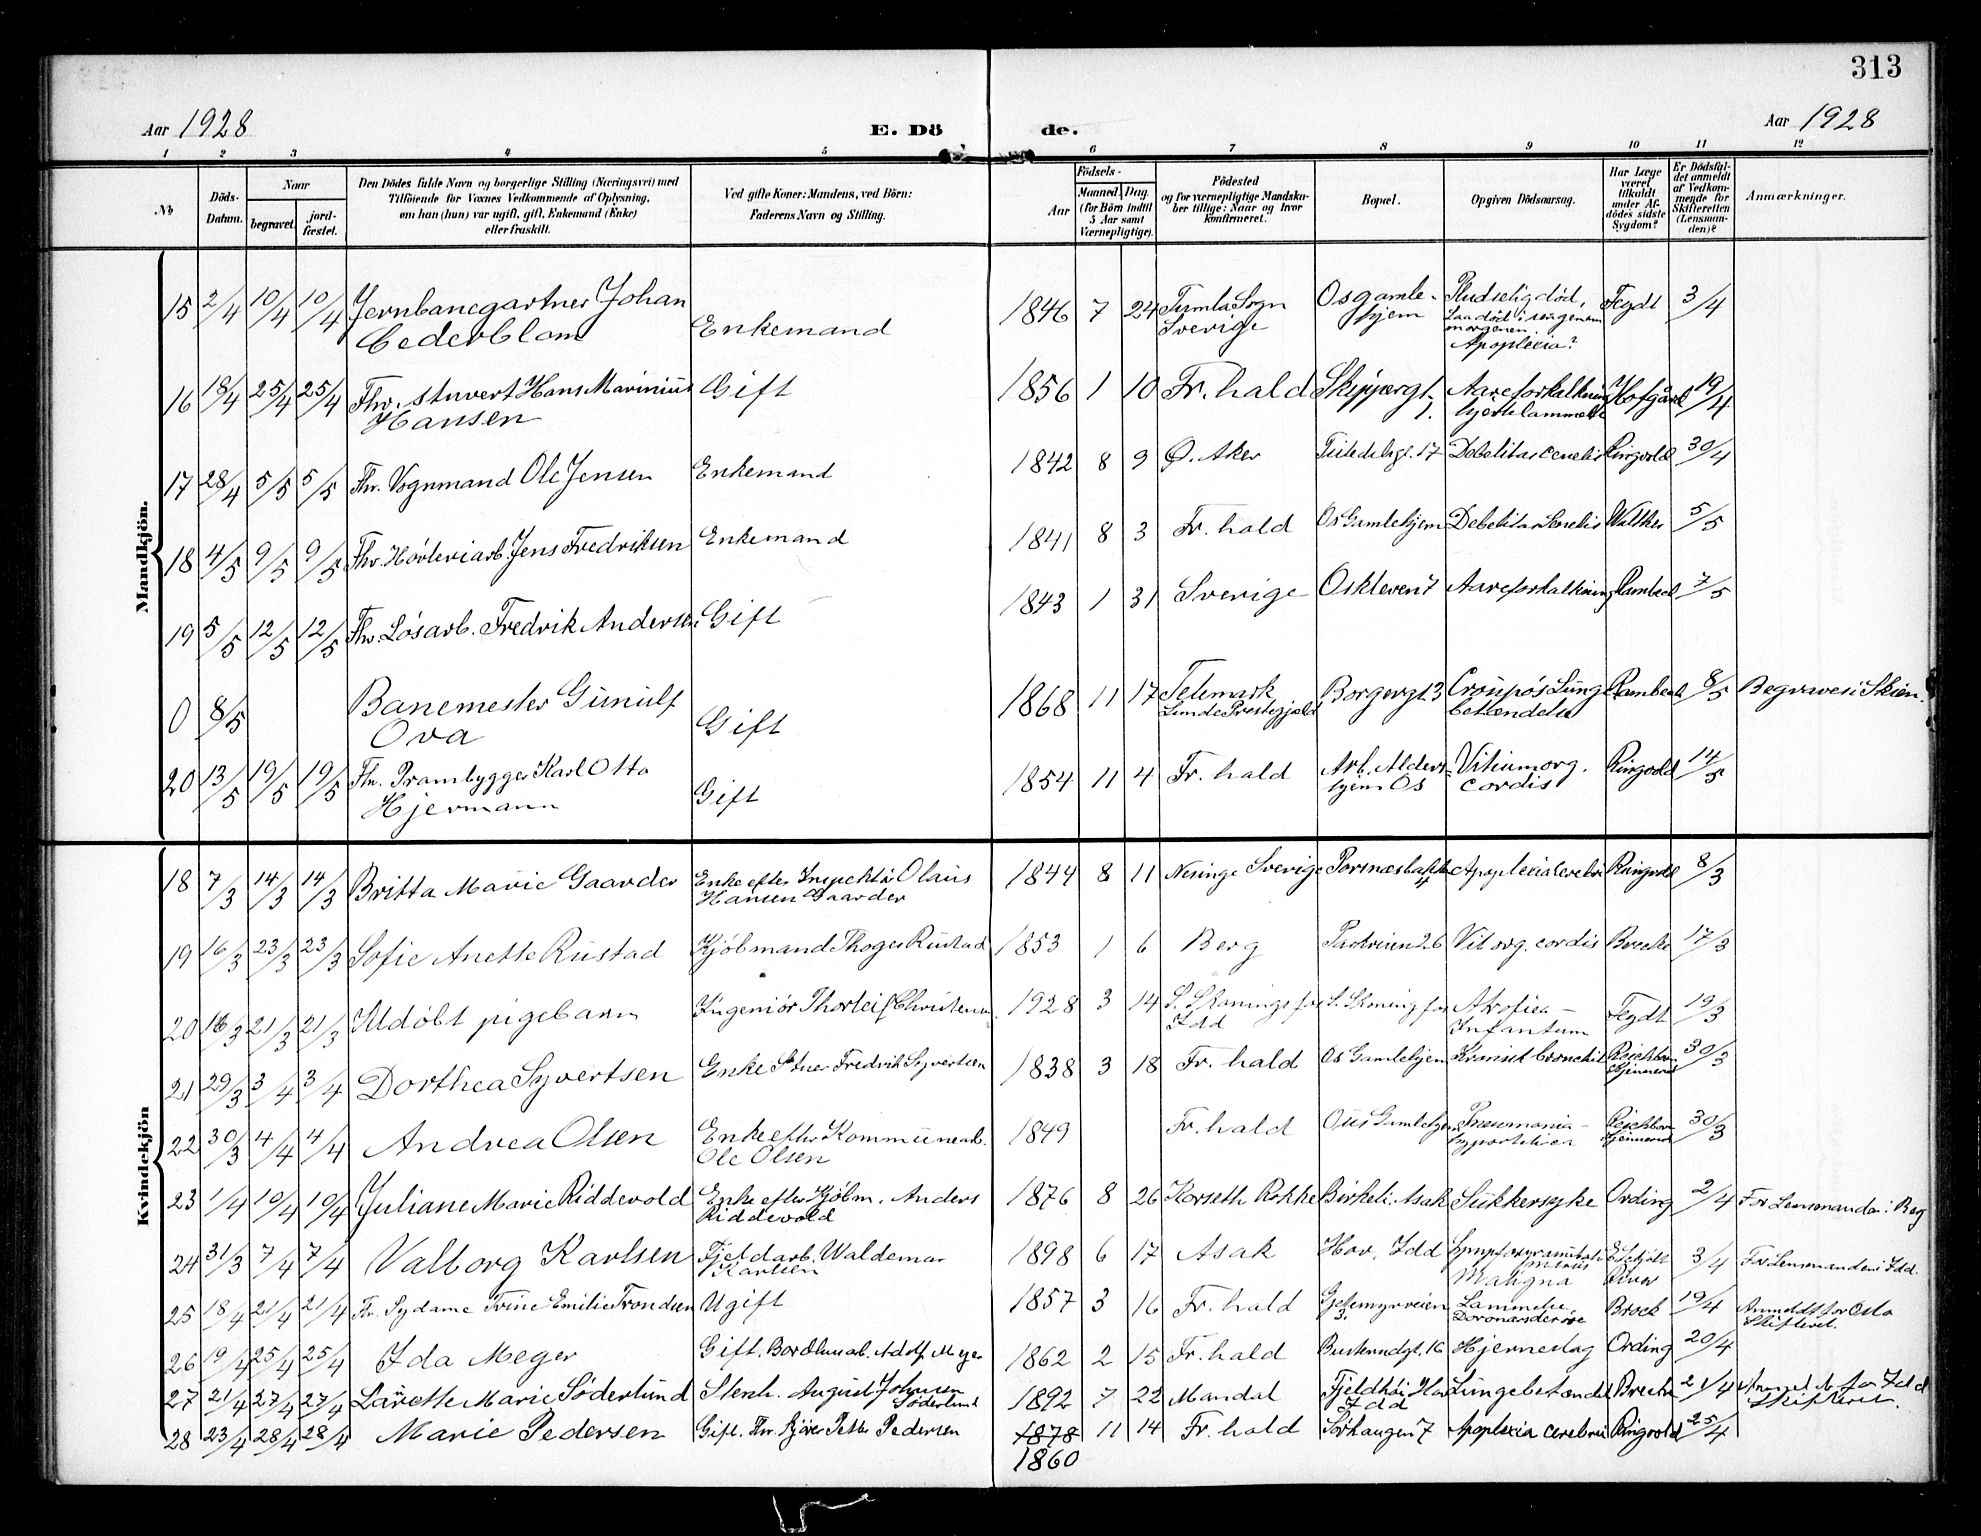 313
Aar 1928 E. Dö de. Aar 1928
1 2 3 4 5 6 7 8 9 10 11 12
No
Döds-Datum.
Naar
begravet.
jord-fæstet.
Den Dödes fulde Navn og borgerlige Stilling (Næringsvei) med
Tilföiende for Voxnes Vedkommende af Oplysning,
om han (hun) var ugift, gift, Enkemand (Enke)
eller fraskilt.
Ved gifte Koner: Mandens, ved Börn:
Faderens Navn og Stilling.
Födsels-
Aar
Maaned. Dag.
(for Börn indtil
5 Aar samt
Værnepligtige).
Födested
og for værnepligtige Mandska-
ber tillige: Naar og hvor
konfirmeret.
Bopæl.
Opgiven Dödsaarsag.
Har Læge
været
tilkaldt
under Af-
dödes sidste
Sygdom?
Er Dödsfal-
det anmeldt
af Vedkom-
mende for
Skifteretten
(Lensman-
den)?
Anmærkninger.
Mandkjön.
15 2/4 10/4 10/4 Jernbanegartner Johan Cederblom Enkemand 1846 7 24 Tumla Sogn Sverige Os gamle-hjem Pludselig død, Laa død i sengen om morgenen. Apoplexia? Fegdt 3/4
16 18/4 25/4 25/4 Fhv. stuvert Hans Marinius Hansen Gift 1856 1 10 Fr. hald Skippergt. 1. Aareforkalkning hjertelammelse Hofgård 19/4
17 28/4 5/5 5/5 Fhv. Vognmand Ole Jensen Enkemand 1842 8 9 Ø. Aker 17 Debilitas senilis Ringvold 30/4
18 4/5 9/5 9/5 Fhv. Høvleriarb. Jens Fredriksen Enkemand 1841 8 3 Fr. hald Os Gamlehjem Debilitas Senilis Walther 5/5
19 5/5 12/5 12/5 Fhv. Løsarb. Fredrik Andersen Gift 1843 1 31 Sverige Oskleven 7 Aareforkalkning Rambech 7/5
0 8/5 Banemester Gunulf Ova Gift 1868 11 17 Telemark Lunde Prestegjeld Borgergt. 3 Croupøs Lungebetendelse Rambech 8/5 Begraves i Skien.
20 13/5 19/5 19/5 Fhv. Prambygger Karl Otto Hjermann Gift 1854 11 4 Fr. hald Arb. Alders-hjem Os Vitium org. cordis Ringvold 14/5
Kvindekjön
18 7/3 14/3 14/3 Britta Marie Gaarder Enke efter Inspektør Olaus Hansen Gaarder 1844 8 11 Nesinge Sverige Porsnesbakken 4 Apoplexia Cerebri Ringvold 8/3
19 16/3 23/3 23/3 Sofie Anette Rustad Kjøbmand Thoger Rustad 1853 1 6 Berg 26 Vit. org. cordis Brecke 17/3
20 16/3 21/3 21/3 Udøbt pigebarn Ingeniør Thorleif Christensen 1928 3 14 S. Skoningsfos Idd S. Skoningsfos Atrofiea - Infantum Fegdt 19/3
21 29/3 3/4 3/4 Dorthea Syvertsen Enke Fredrik Syvertsen 1838 3 18 Fr. hald Os Gamlehjem Kronisk bronchit Reichborn Kjennerud 30/3
22 30/3 4/4 4/4 Andrea Olsen Enke efter Kommunearb. Ole Olsen 1849 Fr. hald Ous Gamlehjem Pneumonia - Reichborn Kjennerud 30/3
23 1/4 10/4 10/4 Juliane Marie Riddevold Enke efter Kjøbm. Anders Riddevold 1876 8 26 Korseth Rokke Birkeli. Asak Sukkersyke Ording 2/4 For Lensmanden i Berg
24 31/3 7/4 7/4 Valborg Karlsen Fjeldarb. Waldemar Karlsen 1898 6 17 Asak Hov. Idd Maligna 3/4 For Lensmanden i Idd.
25 18/4 21/4 21/4 Fr. Sydame Trine Emilie Trondsen Ugift 1857 3 16 Fr. hald 3. Lammelse. Brock 19/4 Anmeldt for Oslo Skifteret.
26 19/4 25/4 25/4 Ida Meyer Gift. Adolf Meyer 1862 2 15 Fr. hald Buskrudgt. 16 Hjerneslag Ording 20/4
27 21/4 27/4 27/4 Laurette Marie Söderlund Stenh. August Johnsen Söderlund 1892 7 22 Mandal Fjeldhøi Hov Idd Lungebetendelse 21/4 Anmeldt for Idd Skifteret.
28 23/4 28/4 28/4 Marie Pedersen Gift. Fhv. Petter Pedersen 1878 1860 11 14 Fr. hald Sørhaugen 7 Apoplexia cerebri Ringvold 25/4